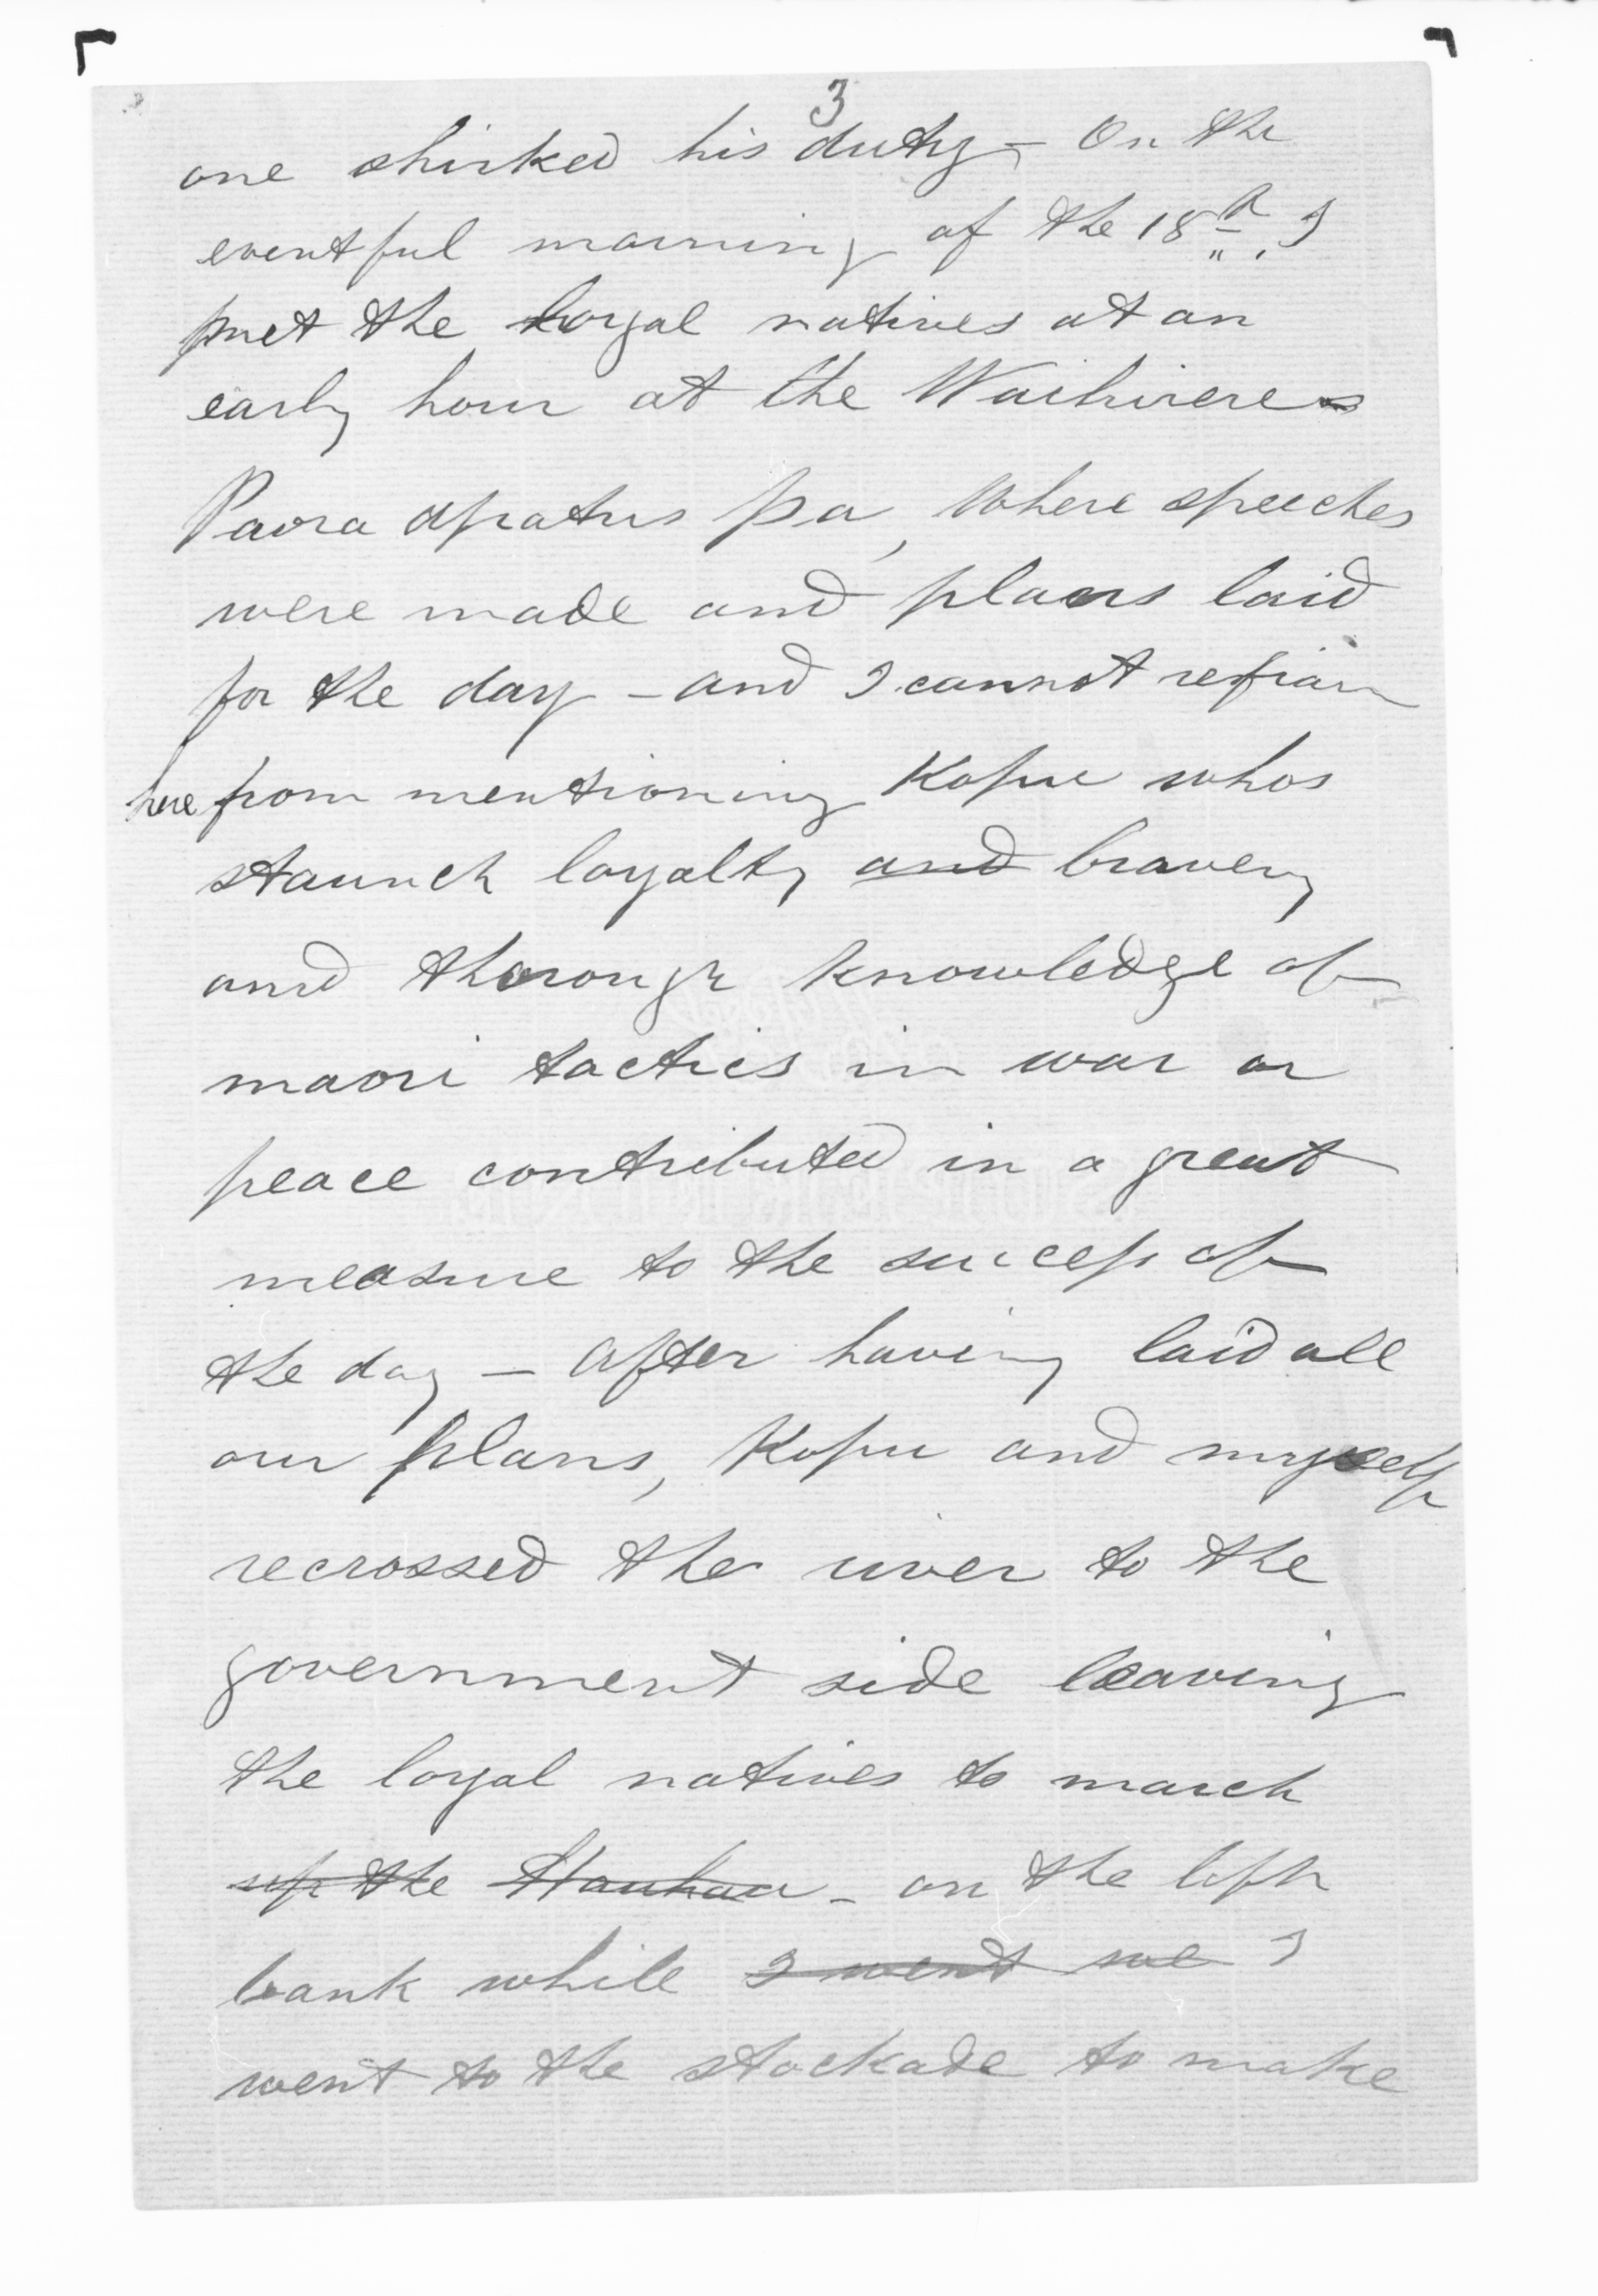 3
one shirked his duty — On the
eventful morning of the 18th, I
met the loyal natives at an
early hour at the Waihirere
Paora Apatus Pa, where speeches
were made and plans laid
for the day — and I cannot refrain
here from mentioning Kopu whos
staunch loyalty and bravery
and thorough knowledge of
maori tactics in war or
peace contributed in a great
measure to the success of
the day — After having laid all
our plans, Kopu and myself
recrossed the river to the
government side leaving
the loyal natives to march
up the Hauhau - on the left
bank while I went we I
went to the stockade to make